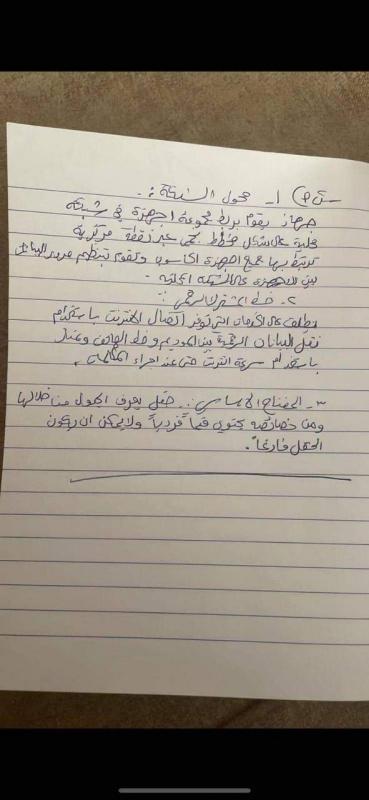 ١ـ محول الشبكة :-
جهاز يقوم بربط مجموعة اجهزة في شبكة
محلية على شكل مخطط نجمي عبر نقطة مركزية
ترتبط بها جميع اجهزة الحاسوب وتقوم بتنظيم مرور البيانات
بين الاجهزة على الشبكة المحلية -
٢- خط المشترك الرقمي :-
يطلق على الخدمات التي توفر اتصال الانترنت باستخدام
نقل البيانات الرقمية بين المودم وخط الهاتف ويمتاز
باستخدام سرعة انترنت حتى عند اجراء المكالمات .
٣- المفتاح الاساسي :- حقل يعرف الجدول من خلالها
ومن خصائصه يحتوي قيماً فردية ولا يمكن ان يكون
الحقل فارغاً .